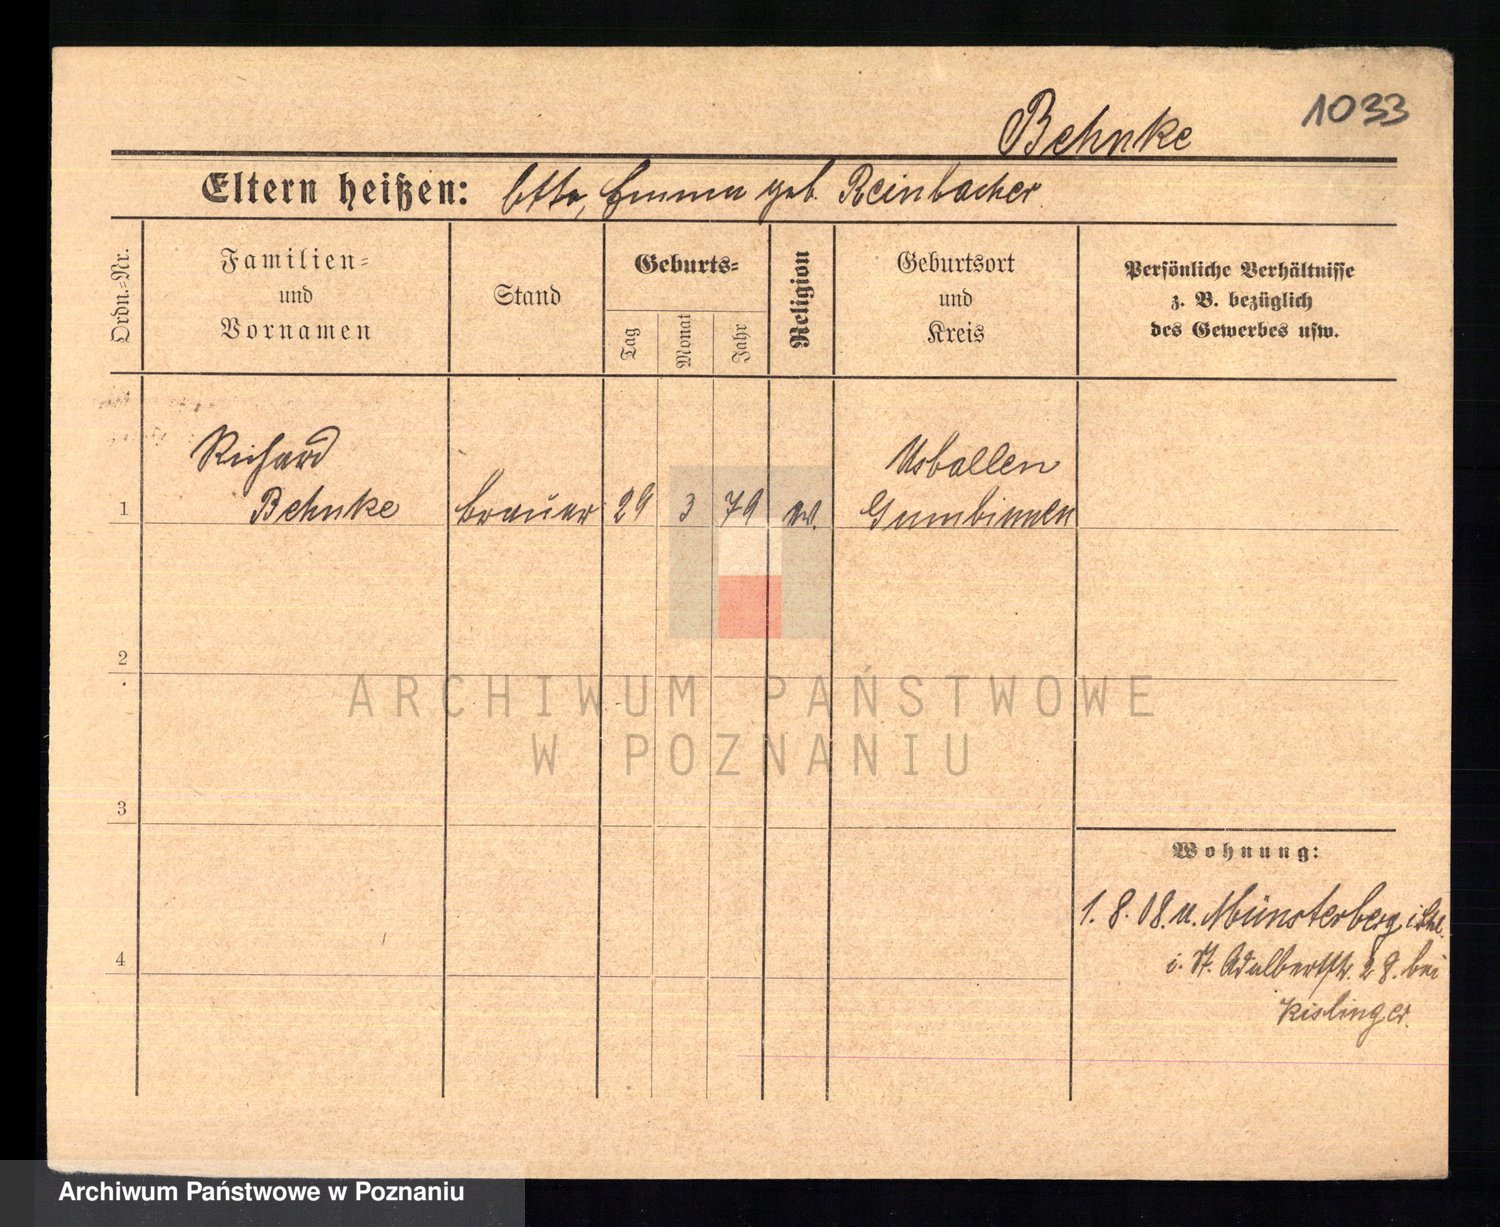 1033
Behnke
Eltern heißen: Otto, Emma geb. Reinbacher.
Ordn.-Nr.
Familien-
und
Vornamen
Stand
Geburts-
Tag
Monat
Jahr
Religion
Geburtsort
und
Kreis
Persönliche Verhältnisse
z. B. bezüglich
des Gewerbes usw.
Richard Usballen
1 Behnke Brauer 29 3 79 ev. Gumbinnen
2
ARCHIWUM PAŃSTWOWE
W POZNANIU
3
Wohnung:
1. 8. 08. n. Münsterberg i. Schl.
4 i. St. Adalbertstr. 28. bei
Kislinger.
Archiwum Państwowe w Poznaniu